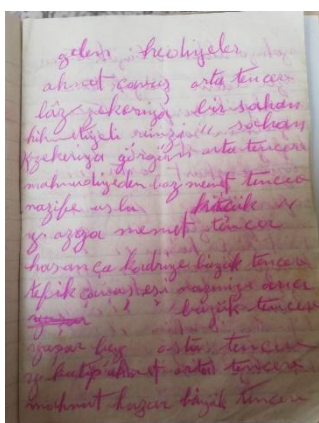 gelen hediyeler
ahmet çavuş orta tencere
lâz zekeriya bir sahan
sahan
zekeriya görgün orta tencere
mahmudiyeden laz memet tencere
nazife usla küçük
memet tencere
hasanca kadriye büyük tencere
tefik çavuş eşi nazmiye
büyük tencere
yaşar bey orta tencere
katip ahmet orta tencere
mahmut kazar büyük tencere